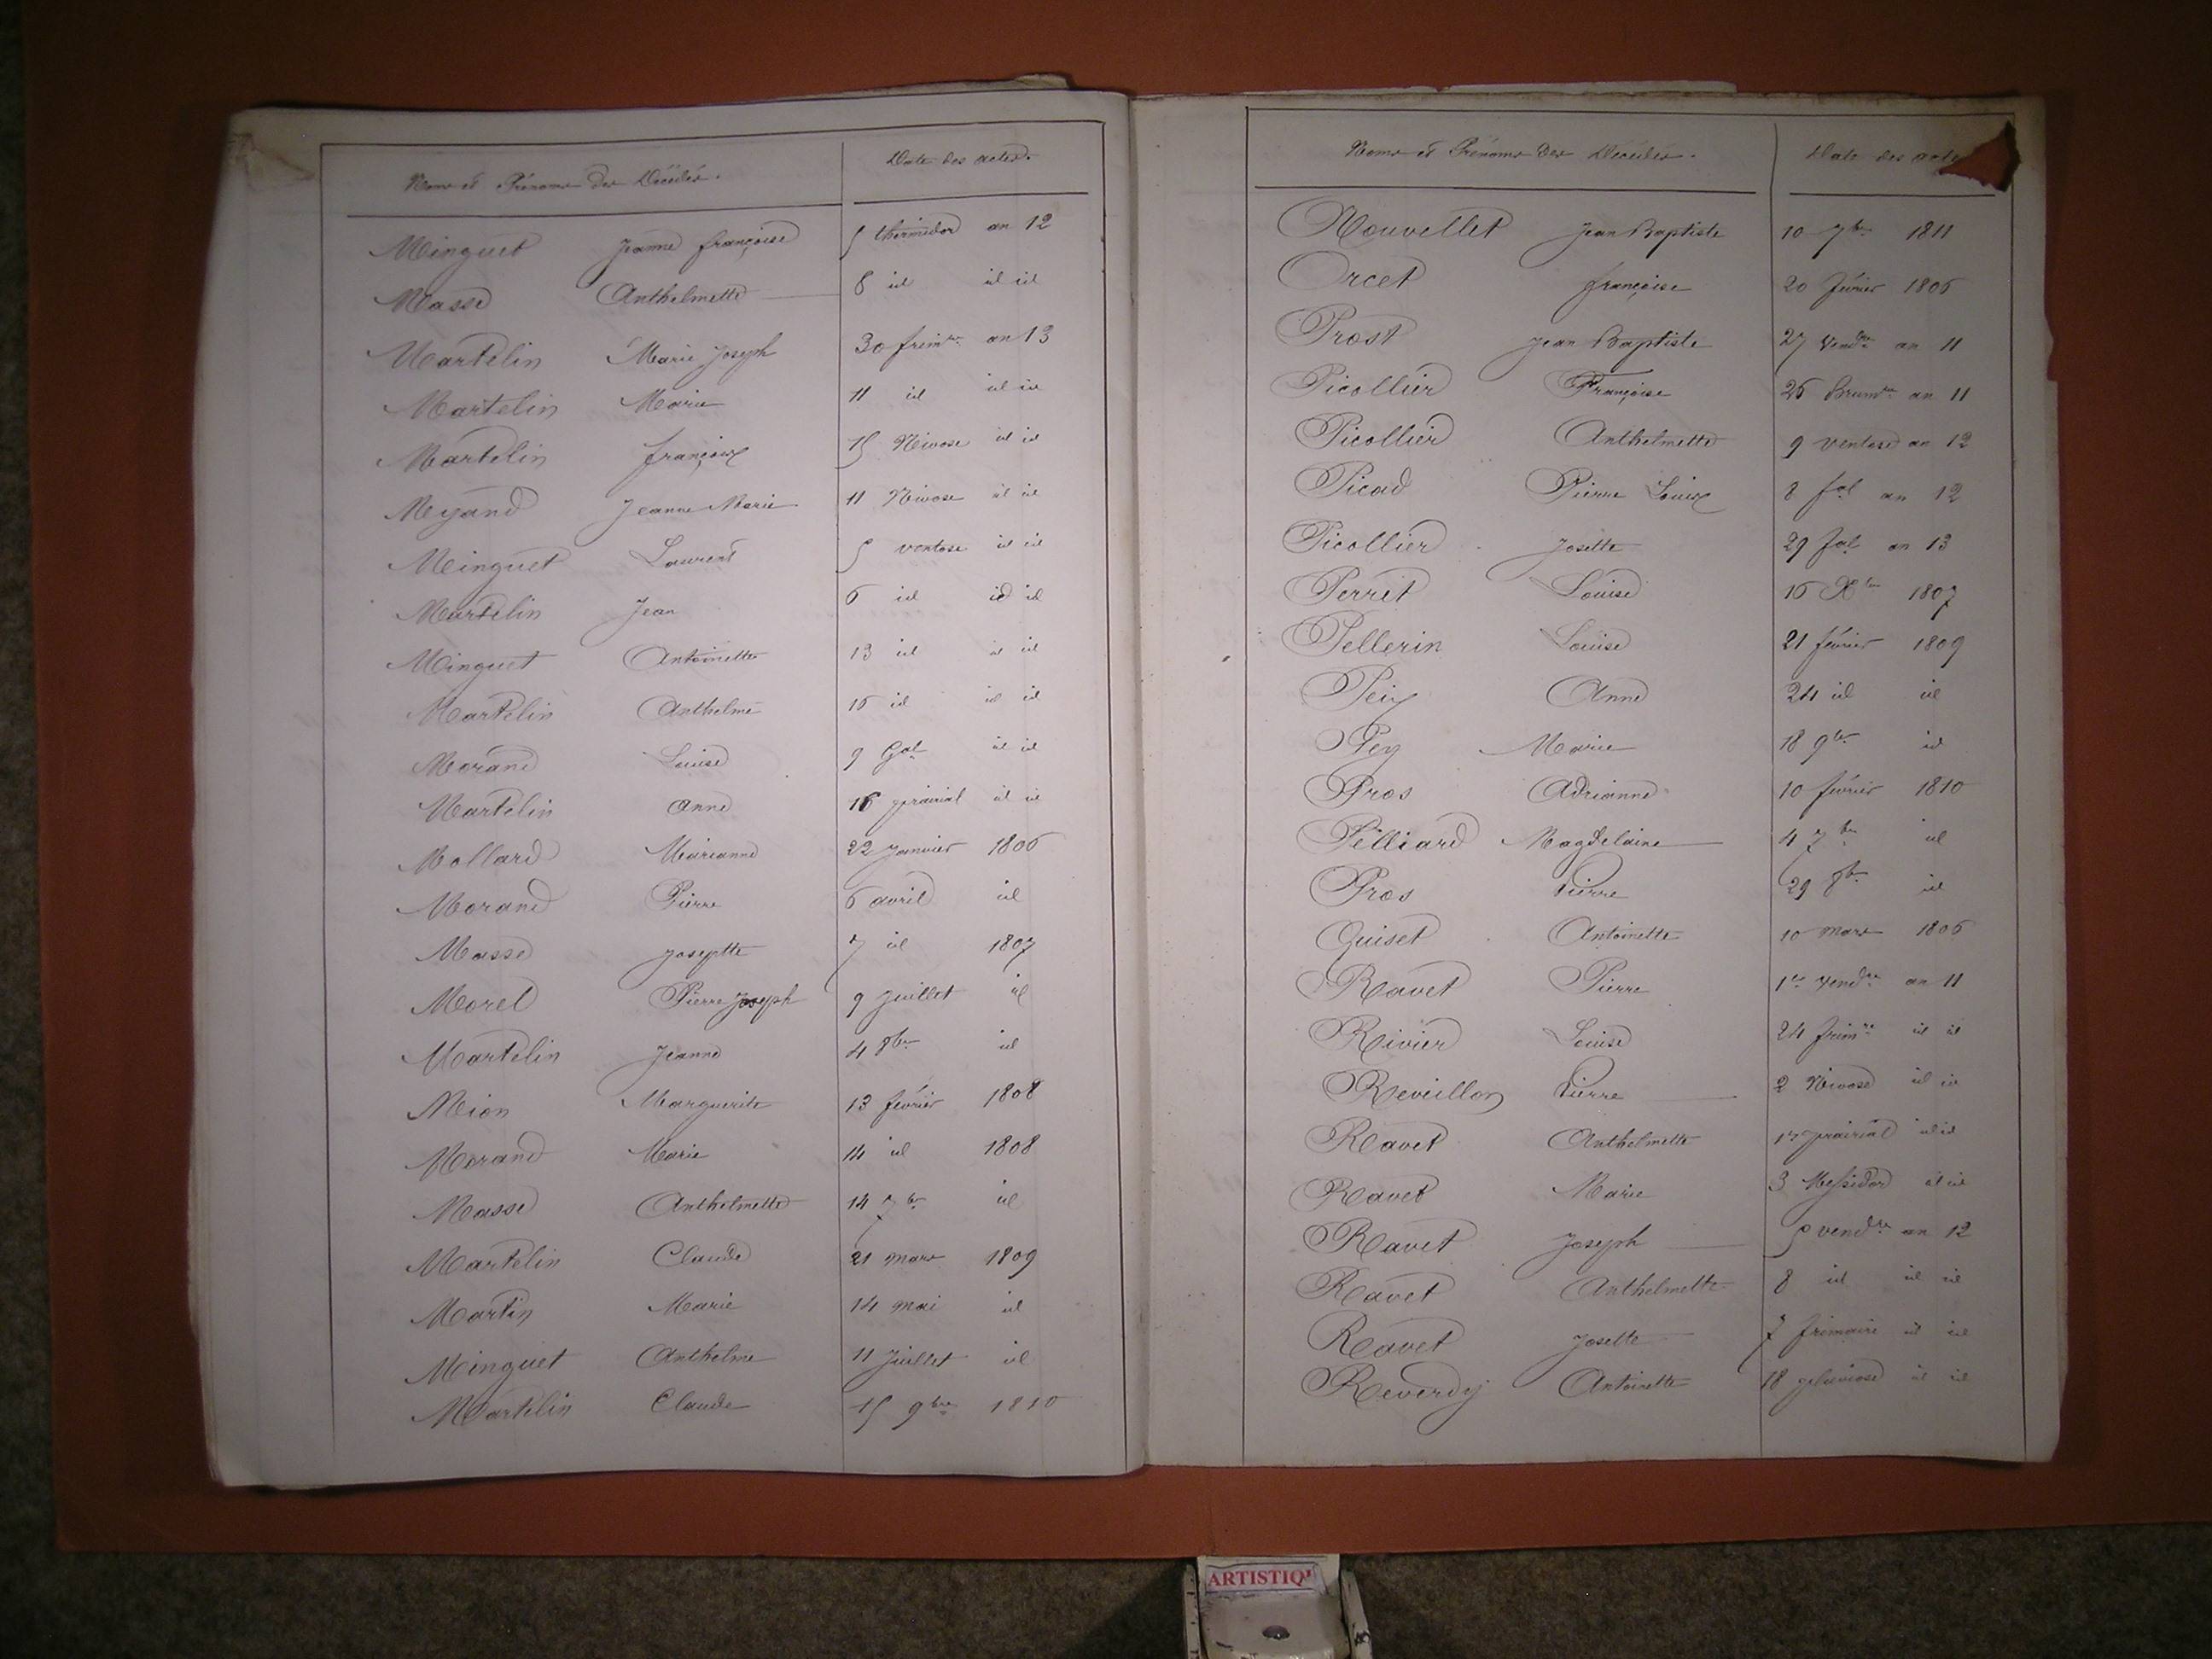 Noms et Prénoms des Décédés. Date des actes.
Minguet Jeanne françoise 5 thermidor an 12
Masse Anthelmette 8 id id id
Martelin Marie Joseph 30 frim.re an 13
Martelin Marie 11 id id id
Martelin françoix 15 Nivose id id
Myand Jeanne Marie 11 Nivose id id
Minguet Laurent 5 ventose id id
Martelin Jean 6 id id id
Minguet Antoinette 13 id id id
Martelin Anthelme 16 id id id
Morand Louise 9 Gal id id
Martelin Anne 16 prairial id id
Mollard Marianne 22 Janvier 1806
Morand Pierre 6 avril id
Masse Joseptte 7 id 1807
Morel Pierre Joseph 9 Juillet id
Martelin Jeanne 4 8bre id
Mion Marguerite 13 février 1808
Morand Marie 14 id 1808
Masse Anthelmette 14 7bre id
Martelin Claude 21 mars 1809
Martin Marie 14 mai id
Minguet Anthelme 11 Juillet id
Martelin Claude 15 9bre 1810
Noms et Prénoms des Décédés. Date des acte
Nouvellet Jean Baptiste 10 7bre 1811
Orcet françoise 20 février 1806
Prost Jean Baptiste 27 Vend.re an 11
Picollier Françoise 26 Brum.re an 11
Picollier Anthelmette 9 ventose an 12
Picad Pierre Louix 8 fal an 12
Picollier Josette 29 fal an 13
Perret Louise 16 Xbre 1807
Pellerin Louise 21 février 1809
Peiy Anne 24 id id
Pey Marie 18 9bre id
Pros Adrianne 10 février 1810
Pelliard Magdelaine 4 7bre id
Pros Pierre 29 8bre id
Quiset Antoinette 10 mars 1806
Ravet Pierre 1er vend.re an 11
Rivier Louise 24 frim.re id id
Reveillon Pierre 2 Nivose id id
Ravet Anthelmette prairial id id
Ravet Marie 3 Messidor id id
Ravet Joseph 5 vend.re an 12
Ravet Anthelmette 8 id id id
Ravet Josette 7 frimaire id id
Reverdy Antoinette 18 pluviose id id
ARTISTIQ